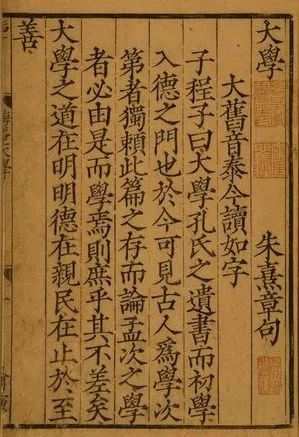 大學　朱熹章句
大舊音泰今讀如字
子程子曰大學孔氏之遺書而初學
入德之門也於今可見古人爲學次
第者獨賴此篇之存而論孟次之學
者必由是而學焉則庶乎其不差矣
大學之道在明明德在親民在止於至
善